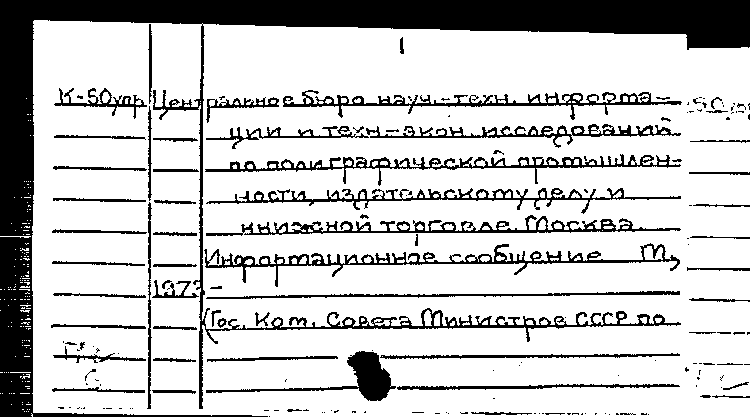 1
К-50упр Центральное бюро науч.-техн. информа-
ции и техн-экон. исследований
по полиграфической промышлен-
ности, издательскому делу и
книжной торговле. Москва.
Информационное сообщение М.,
1973 -
(Гос. Ком. Совета Министров СССР по